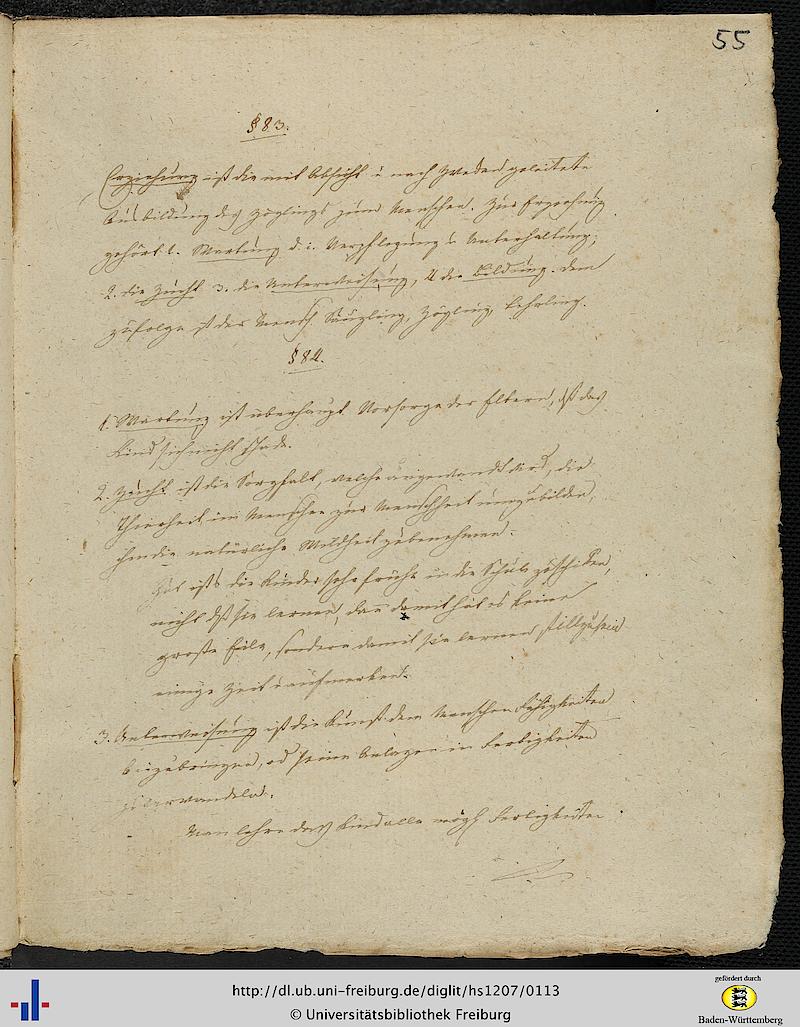 55
§ 83.
Erziehung ist die mit Absicht u. nach Zwecken geleitete
Ausbildung des Zöglings zum Menschen. Zur Erziehung
gehört 1. Wartung d. i. Verpflegung u. Unterhaltung;
2. die Zucht 3. die Unterweisung, 4 die Bildung. Dem
zufolge ist der Mensch Säugling, Zögling, Lehrling.
§ 84.
1. Wartung ist überhaupt Vorsorge der Eltern, dß das
Kind sich nicht schade.
2. Zucht ist die Sorgfalt, welche angewandt wird, die
Thierheit im Menschen zur Menschheit umzubilden,
ihm die natürliche Wildheit zu benehmen.
Gut ists die Kinder sehr frühe in die Schule zu schicken,
nicht dß sie lernen, dan damit hat es keine
große Eile, sondern damit sie lernen stillzusein
einige Zeit aufmerken.
3. Unterweisung ist die Kunst dem Menschen Fähigkeiten
beizubringen, od seine Anlagen in Fertigkeiten
zu verwandeln.
Man lehre das Kind alle mögl Fertigkeiten
http://dl.ub.uni-freiburg.de/diglit/hs1207/0113
© Universitätsbibliothek Freiburg
gefördert durch
Baden-Württemberg